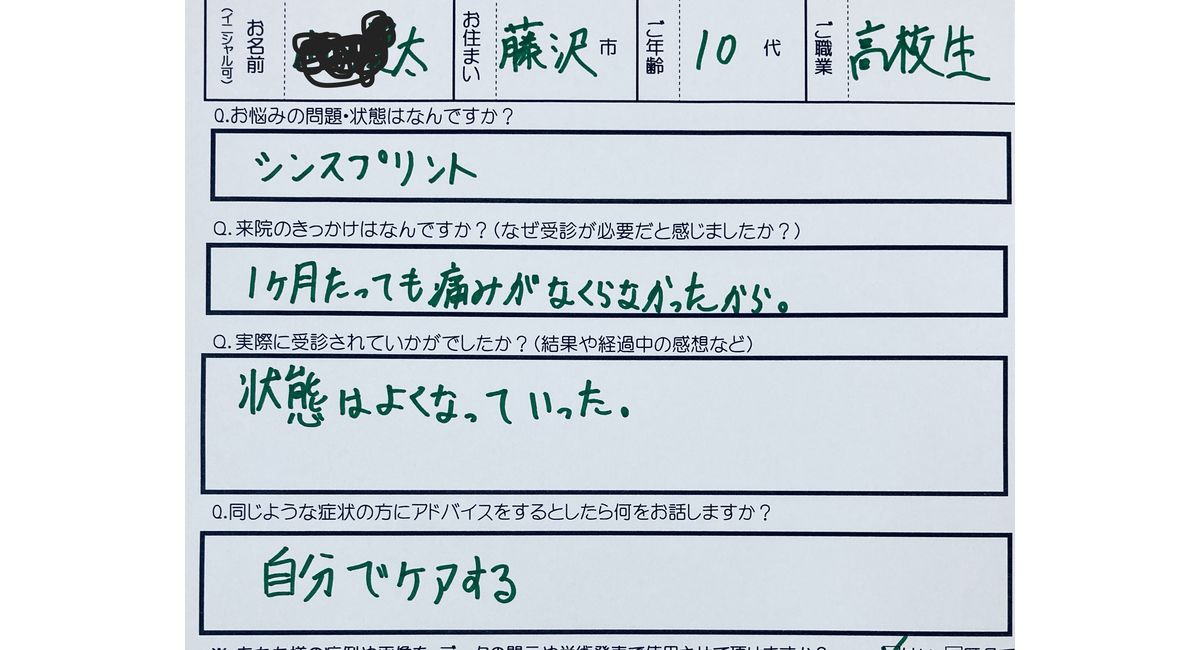 お名前
(イニシャル可)
太
お住まい
藤沢 市
ご年齢
10 代
ご職業
高校生
Q.お悩みの問題・状態はなんですか?
シンスプリント
Q.来院のきっかけはなんですか?(なぜ受診が必要だと感じましたか?)
1ヶ月たっても痛みがなくらなかったから。
Q.実際に受診されていかがでしたか?(結果や経過中の感想など)
状態はよくなっていった。
Q.同じような症状の方にアドバイスをするとしたら何をお話しますか?
自分でケアする